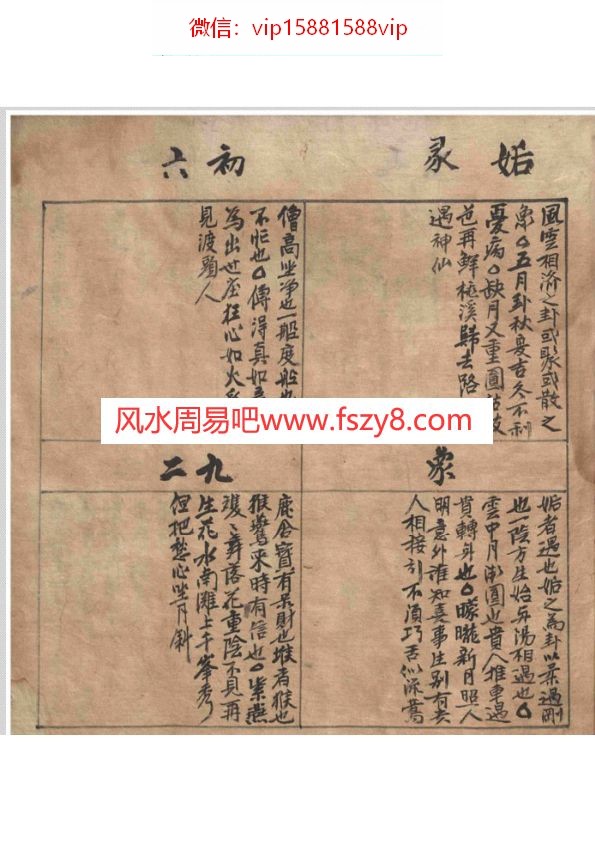 微信：vip15881588vip
姤 彖
風雲相濟之卦或聚或散之
象〇五月卦秋夏吉冬不利
憂病〇缺月又重圓枯枝
色再鮮桃溪歸去路
遇神仙
初六
僧高坐净也一般度般也
不忙也〇傳得真如
為出世 狂心如火
見波頭人
风水周易吧www.fszy8.com
象
姤者遇也姤之為卦以柔遇剛
也一陰方生始与陽相遇也〇
雲中月漸圓也貴人推車遇
貴轉身也〇朦朧新月照人
明意外誰知喜事生別有貴
人相接引不須巧舌似流鶯
九二
鹿含寶有呆財也堠者猴也
猴驚來時有信也〇紫燕
雙〻舞落花重陰不見再
生花水南灘上千峯秀
但把愁心坐月斜